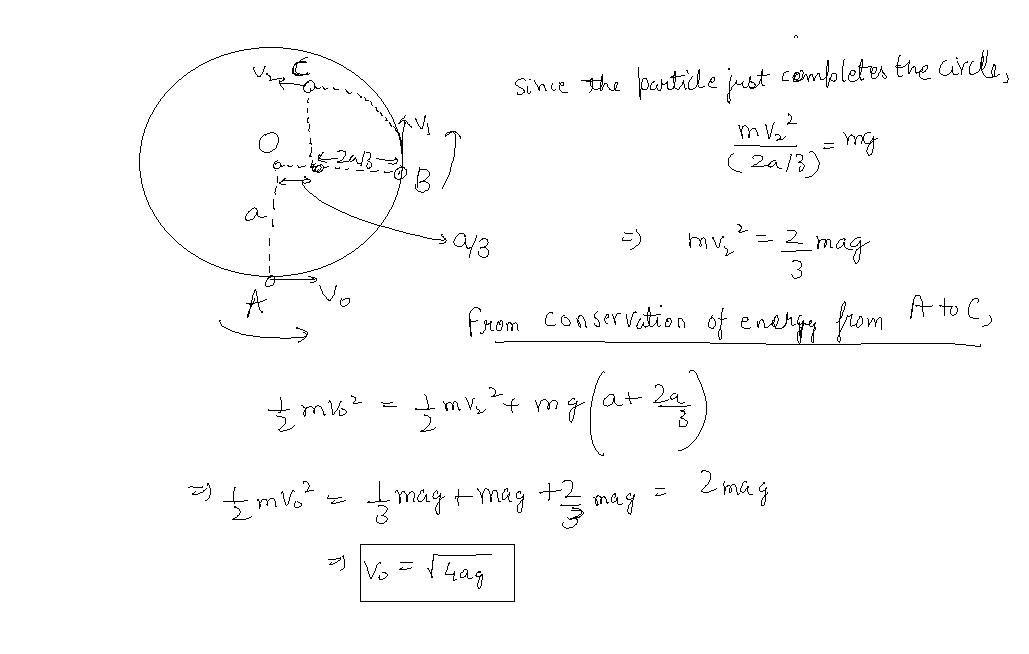 V₂ C
V₁
O
2a/3
B
a
a/3
A
V₀
Since the particle just completes the circle,
mv₂²/(2a/3) = mg
=> mv₂² = 2/3 mag
From conservation of energy from A to C,
1/2 mv₀² = 1/2 mv₂² + mg(a + 2a/3)
=> 1/2 mv₀² = 1/3 mag + mag + 2/3 mag = 2mag
=> V₀ = √4ag